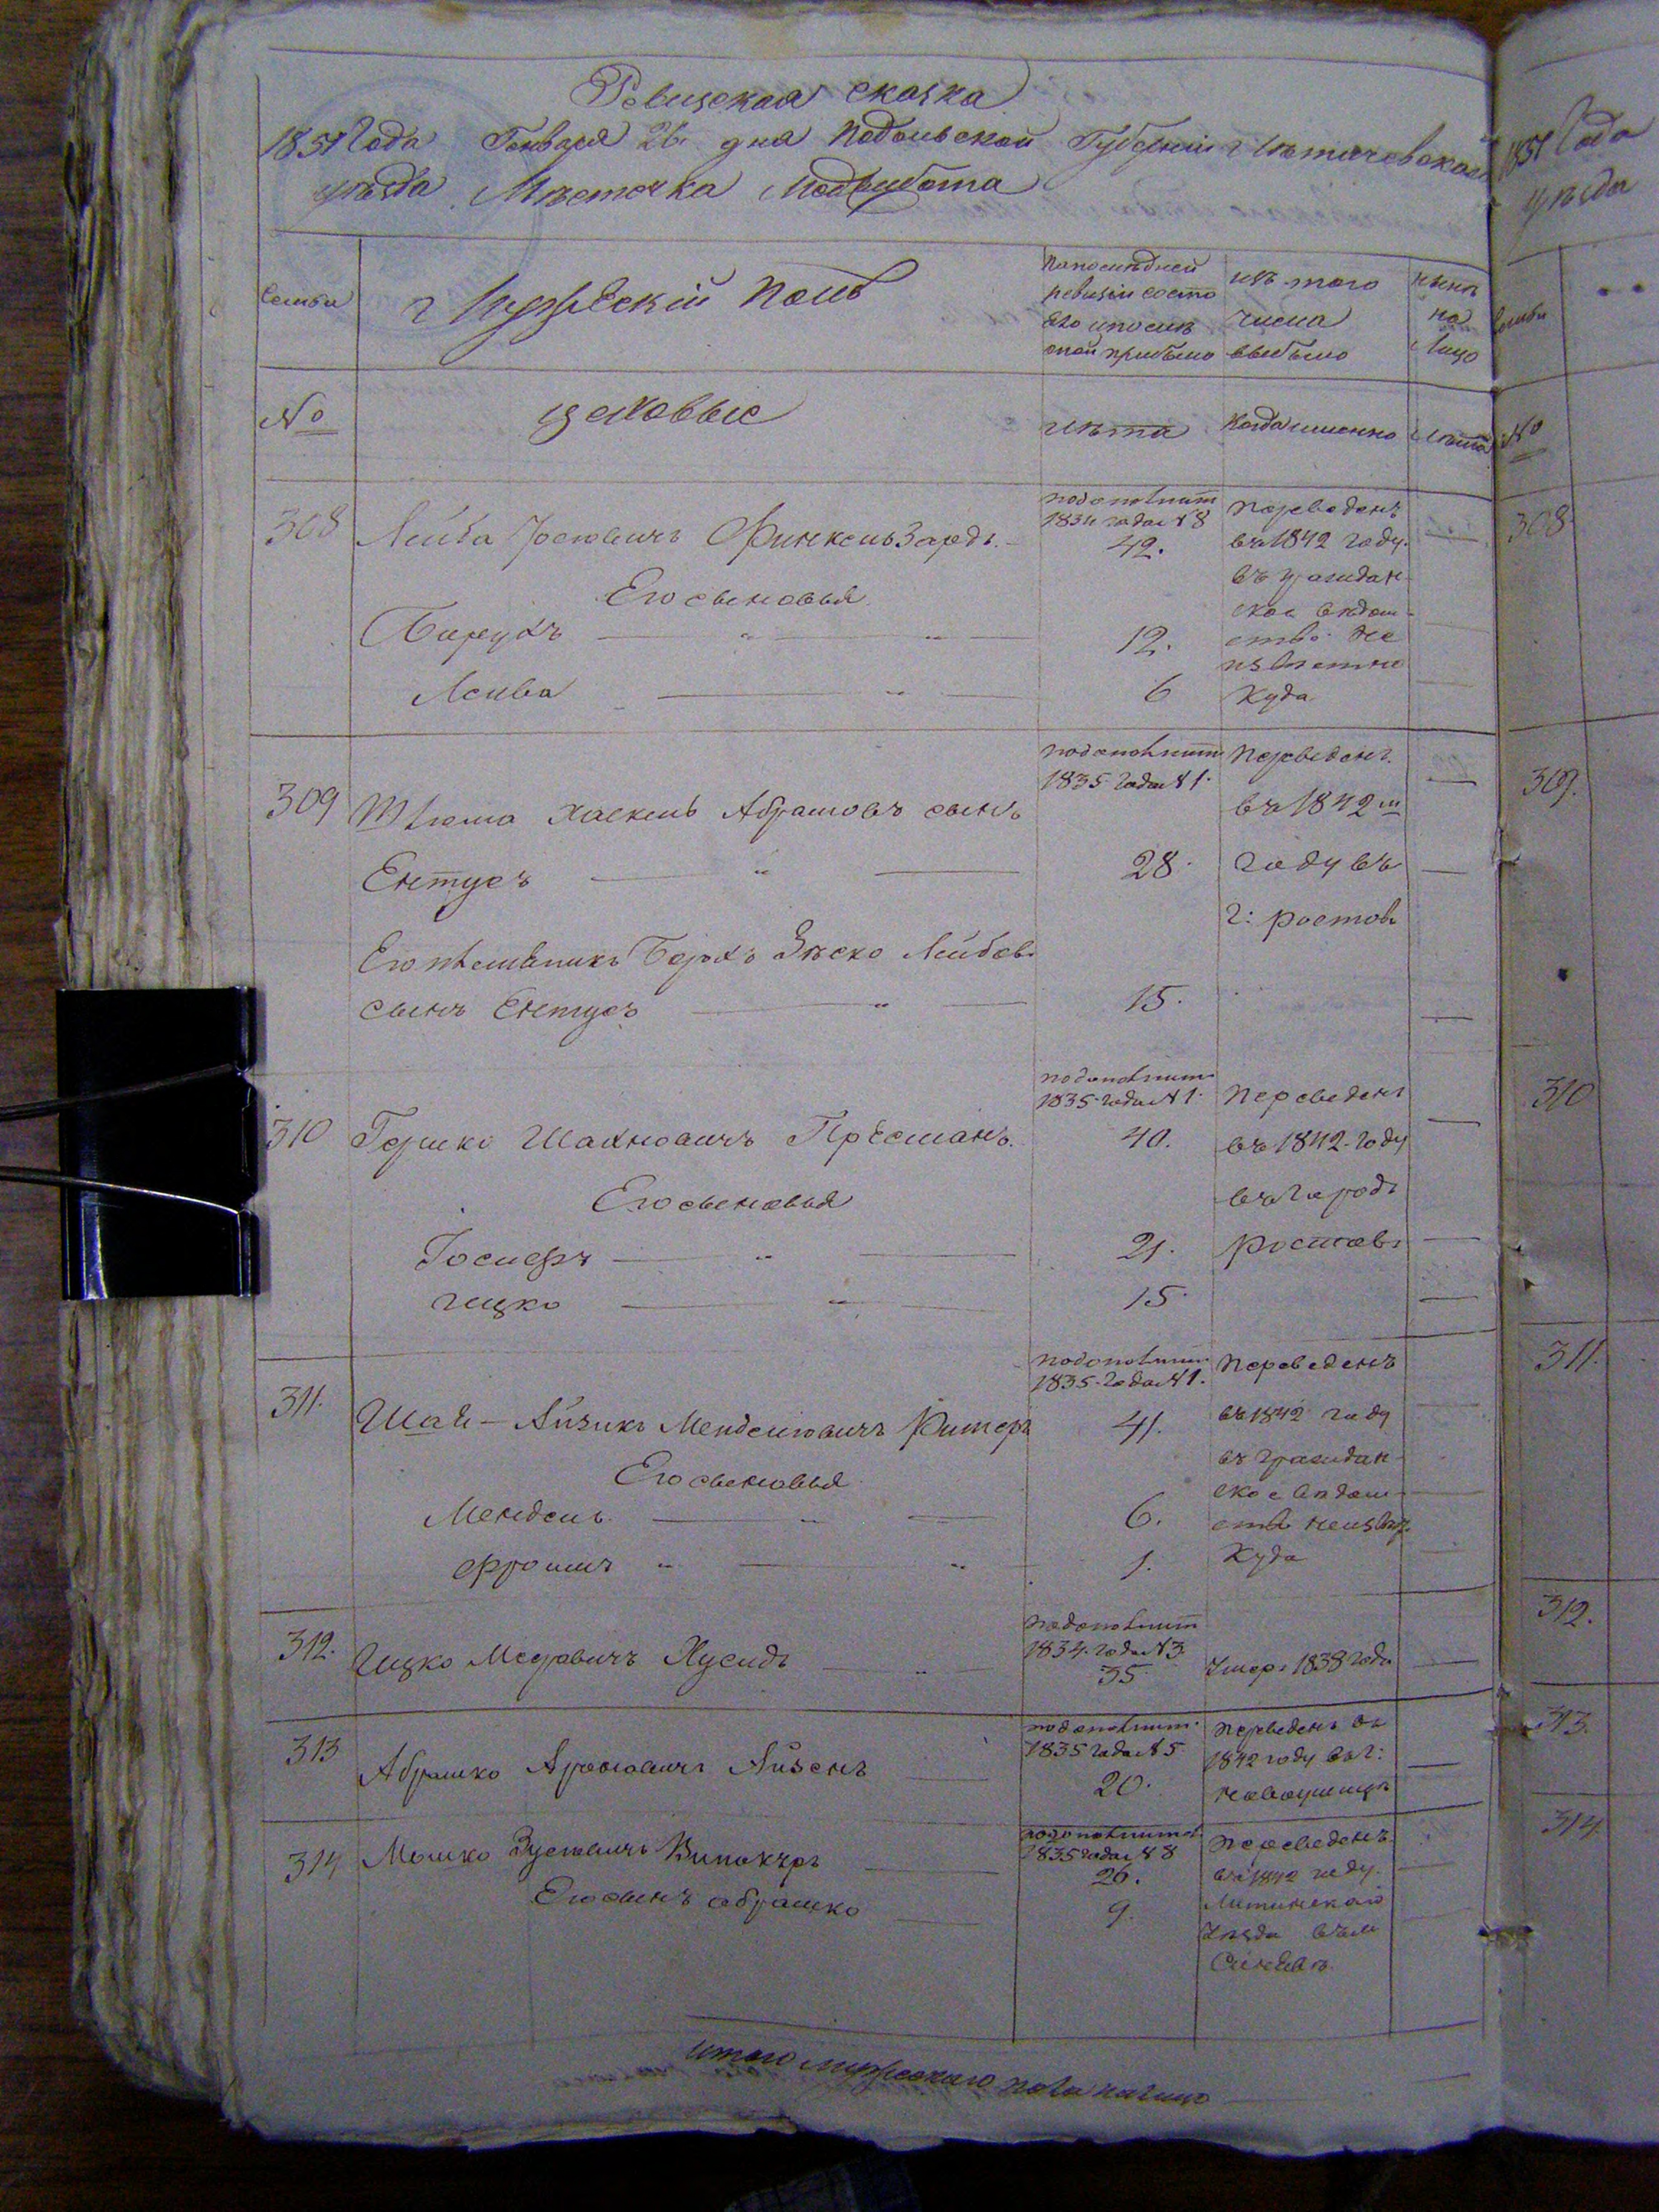 Ревизская сказка
1851 Года Генваря 26 дня Подольской Губерніи Летичевскаго
уезда Местечка Меджибожа
Семьи
Мужескій Полъ
По последней
ревизіи состо
яло и после
оной прибыло
изъ того
числа
выбыло
ныне
на
лицо
№
цеховые
лета
Когда именно
лета
308
Лейба Іосіовичъ Финкельзардъ
по дополнит
1834 года № 8
42.
Переведенъ
въ 1842 году
въ граждан
ское ведом
ство не
известно
куда
Его сыновья
Барухъ 12.
Лейба 6
309
Шлема Хаскель Абрамовъ сынъ
Ентусъ 28.
по дополнит
1835 года № 1.
Переведенъ
въ 1842 м
году въ
г: ростовъ
Его племяникъ Берхъ Зеско Лейбовъ
сынъ Ентусъ 15.
310
Гершко Шахновичъ Пресманъ
по дополнит
1835 года № 1.
40.
Переведенъ
въ 1842 году
въ городъ
ростовъ
Его сыновья
Іосифъ 21.
Ицко 15
311.
Шай-Айзикъ Менделіовичъ Ритеръ
по дополнит
1835 года № 1.
41.
Переведенъ
въ 1842 году
въ граждан
ское ведом
ство неизвес.
куда
Его сыновья
Мендель 6.
Фроимъ 1.
312.
Ицко Меэровичъ Хусидъ
по дополнит
1834 года № 3.
35
Умеръ 1838 года
313
Абрамко Ароновичъ Айзенъ
по дополнит
1835 года № 5
20.
Переведенъ въ
1842 году въ г:
Новоушицы
314
Мошко Зусіовичъ Винокуръ
по дополнит
1835 года № 8
26.
Переведенъ
въ 1842 году
Литинскаго
уезда въ м
Синяву
Его сынъ Абрамко 9.
итого мужескаго пола налицо
1851 Года
уезда
семьи
№
308
309.
310
311.
312.
313.
314